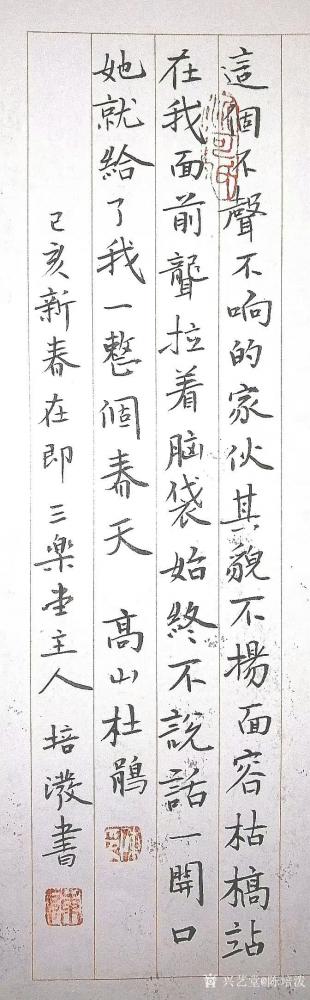 這個不聲不响的家伙其貌不揚面容枯槁站
在我面前聾拉着脑袋始終不說話一開口
她就給了我一整個春天 高山杜鵑
己亥新春在即三樂堂主人 培潑書
兴艺堂@陈培泼